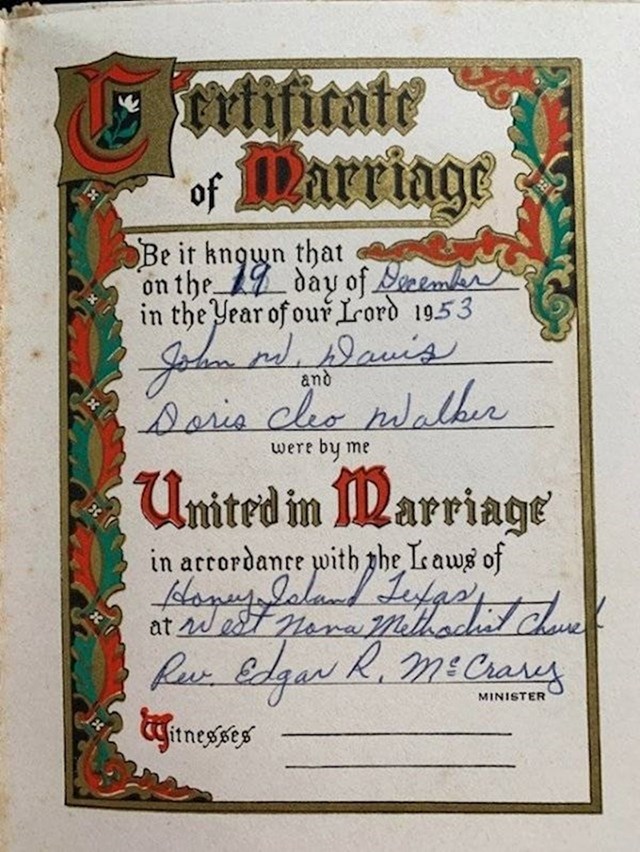 Certificate
of Marriage
Be it known that
on the 19 day of December
in the Year of our Lord 1953
John W. Davis
and
Doris Cleo Walker
were by me
United in Marriage
in accordance with the Laws of
Honey Island Texas
at West Nona Methodist Church
Rev. Edgar R. McCrary
MINISTER
Witnesses